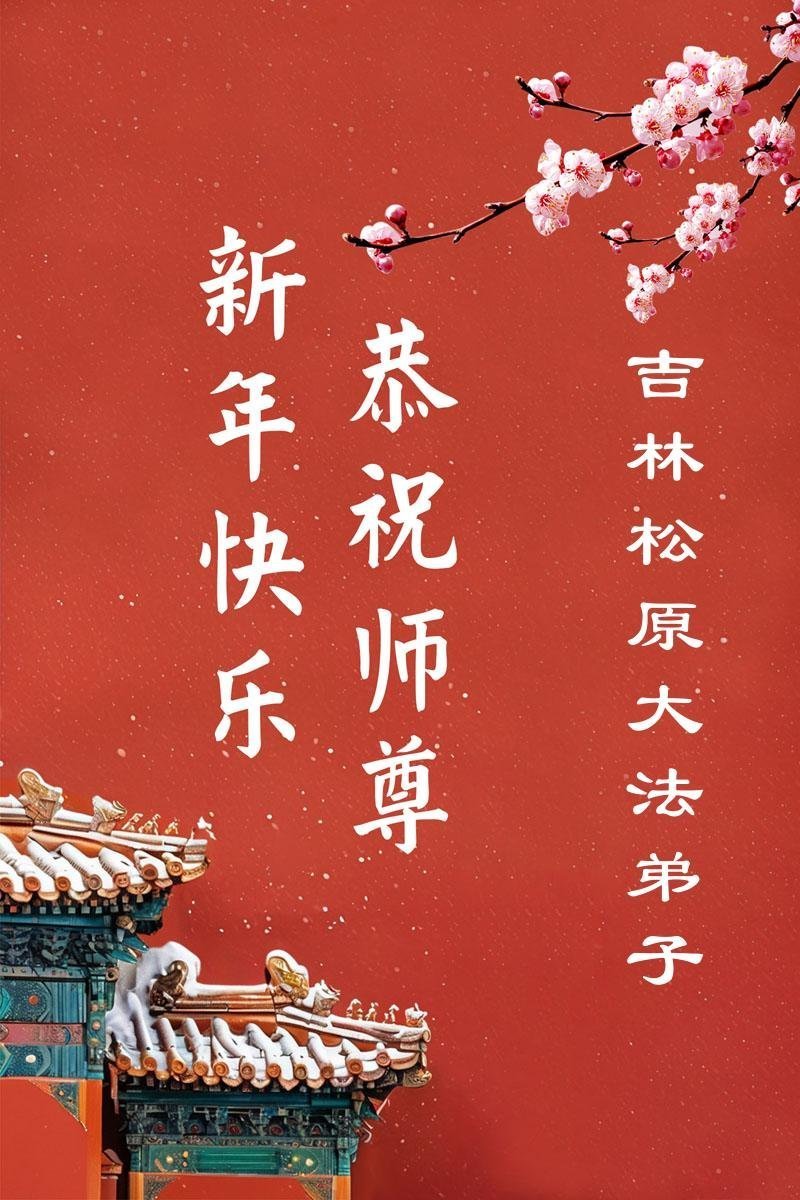 吉林松原大法弟子
恭祝师尊
新年快乐